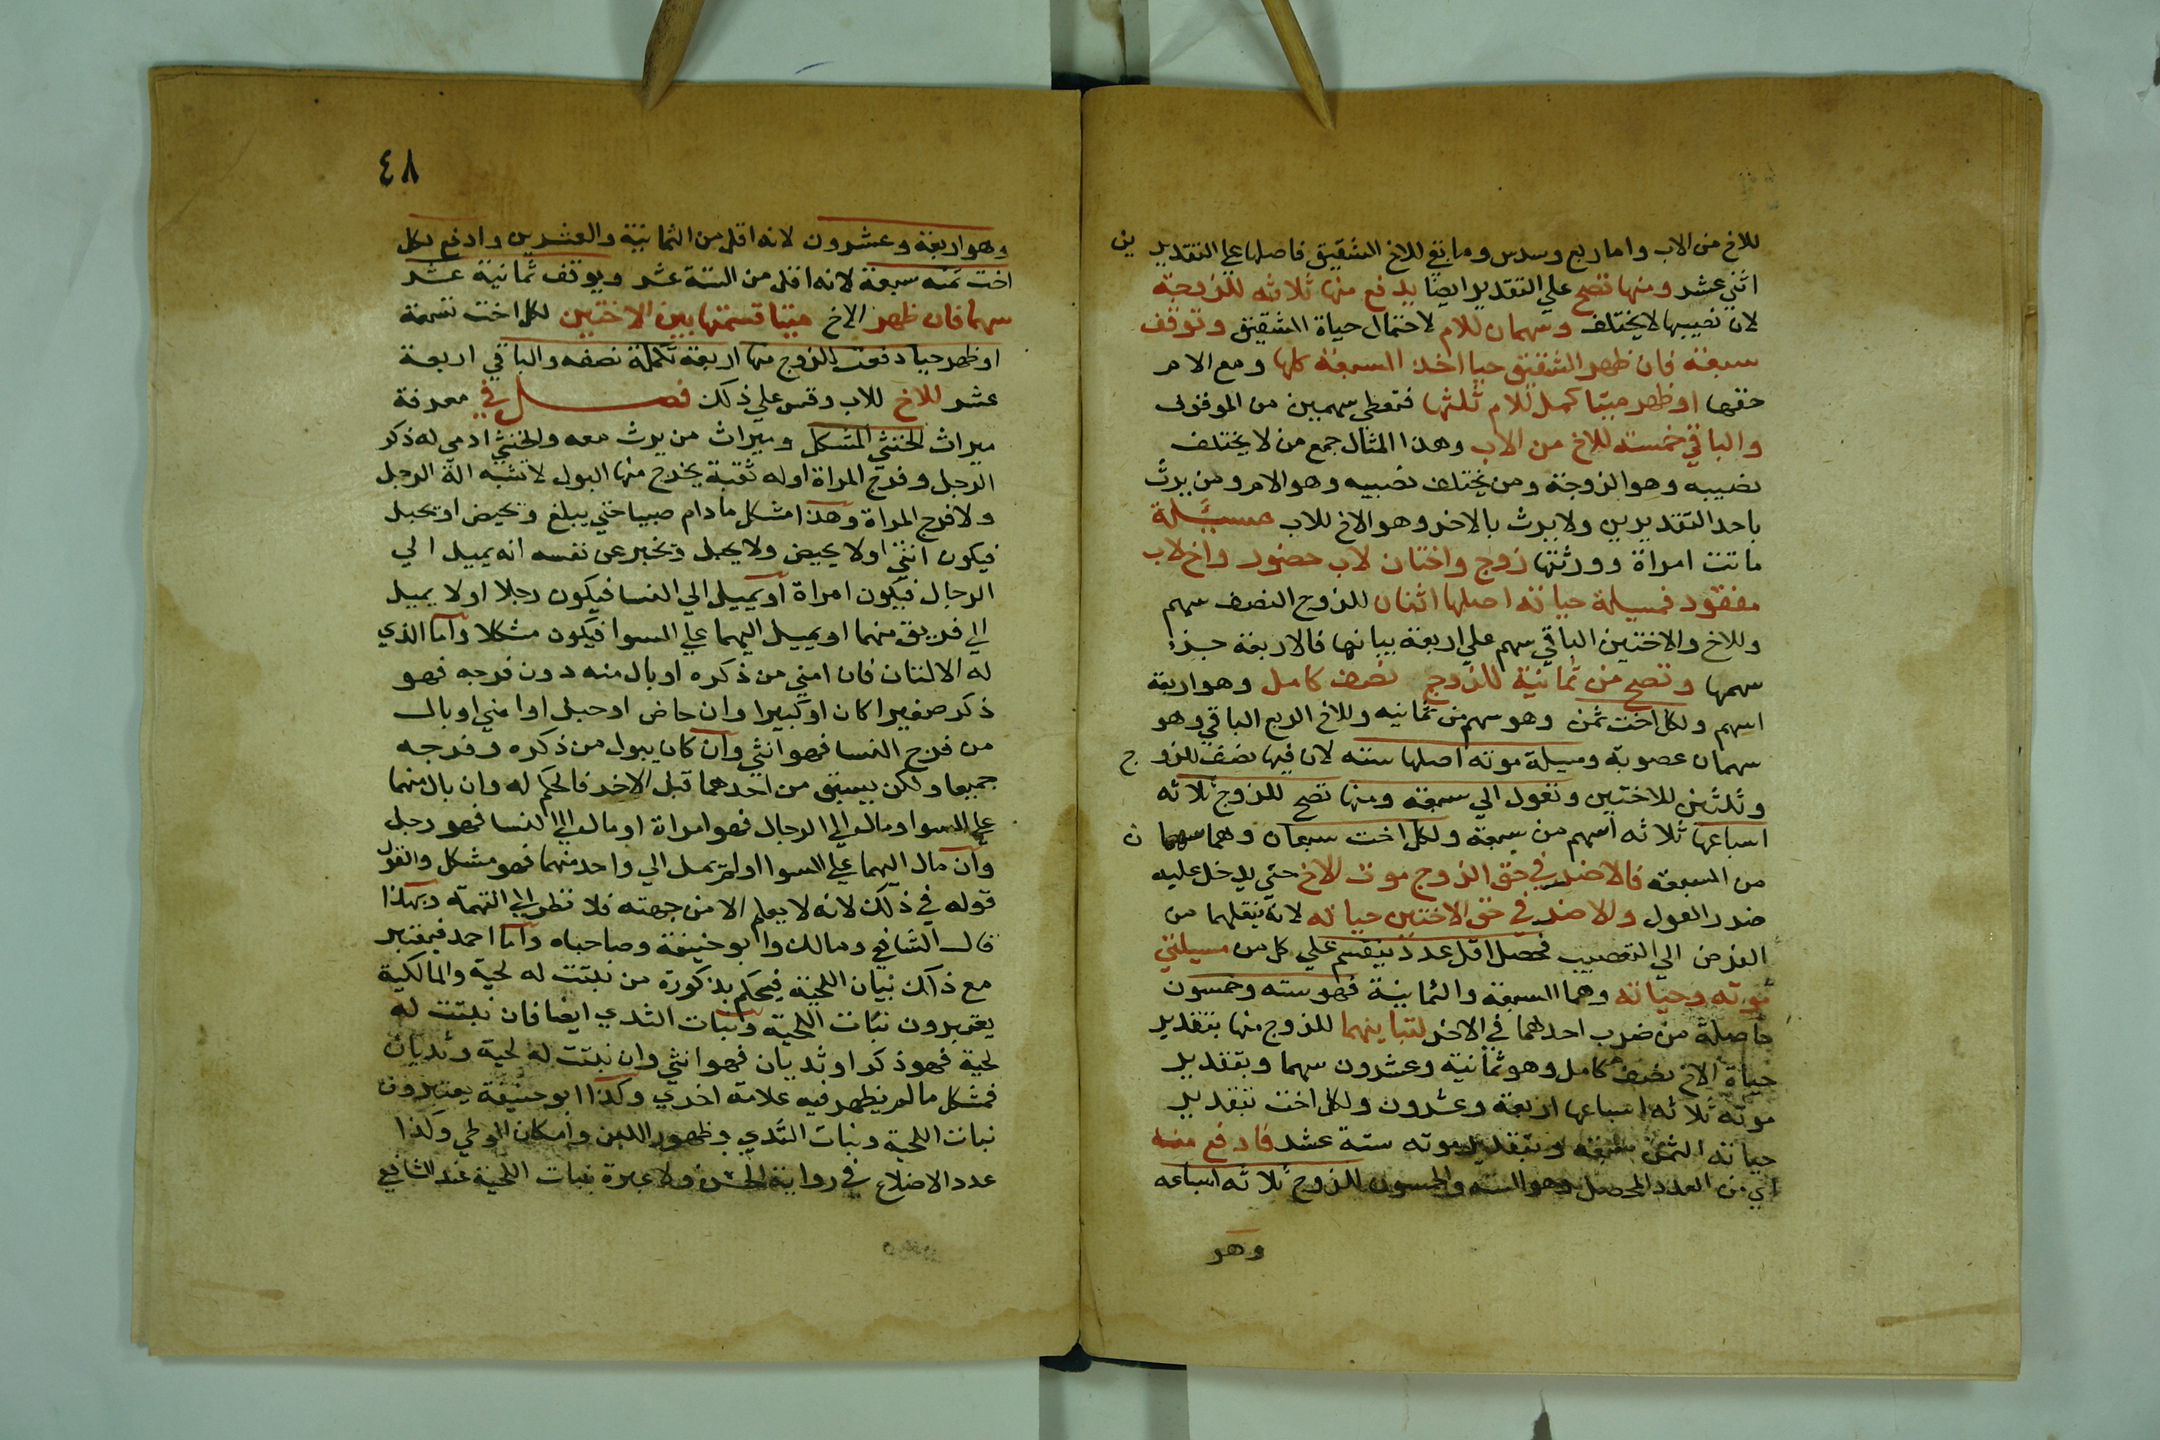 للاخ من الاب واما ربع وسدس وما بقي للاخ الشقيق فاصلها علي التقديرين
اثني عشر ومنها تصح علي التقدير ايضا يدفع منها ثلاثه للزوجة
لان نصيبها لا يختلف وسهمان للام لاحتمال حياة الشقيق وتوقف
سبعة فان ظهر الشقيق حيا اخذ السبعة كلها ومع الام
حقها او ظهر ميتا كمل للام ثلثها فتعطي سهمين من الموقوف
والباقي خمسة للاخ من الاب وهذا المثال جمع من لا يختلف
نصيبه وهو الزوجة ومن يختلف نصيبه وهو الام ومن يرث
باحد التقديرين ولا يرث بالاخر وهو الاخ للاب مسيلة
ماتت امراة وورثتها زوج واختان لاب حضور واخ لاب
مفقود فمسيلة حياته اصلها اثنان للزوج النصف سهم
وللاخ والاختين الباقي سهم علي اربعة يباينها فالاربعة جزء
سهمها وتصح من ثمانية للزوج نصف كامل وهو اربعة
اسهم ولكل اخت ثمن وهو سهم من ثمانيه وللاخ الربع الباقي وهو
سهمان عصوبة ومسيلة موته اصلها ستة لان فيها نصف للزوج
وثلثين للاختين وتعول الي سبعة ومنها تصح للزوج ثلاثه
اسباعها ثلاثه اسهم من سبعة ولكل اخت سبعان وهما سهمان
من السبعة فالاضر في حق الزوج موت الاخ حتي يدخل عليه
ضرر العول والاضر في حق الاختين حياته لانه ينقلهما من
الفرض الي التعصيب فحصل اقل عدد ينقسم علي كل من مسيلتي
موته وحياته وهما السبعة والثمانية فهو ستة وخمسون
حاصلة من ضرب احدهما في الاخر لتباينهما للزوج منها بتقدير
حياة الاخ نصف كامل وهو ثمانية وعشرون سهما وبتقدير
موته ثلاثه اسباعها اربعة وعشرون ولكل اخت بتقدير
حياته الثمن سبعة وبتقدير موته ستة عشر فادفع منه
اي من العدد المحصل وهو الستة والخمسون للزوج ثلاثه اسباعه
وهو
٤٨
وهو اربعة وعشرون لانه اقل من الثمانية والعشرين وادفع لكل
اخت ثمنه سبعة لانه اقل من الستة عشر ويوقف ثمانية عشر
سهما فان ظهر الاخ ميتا قسمتها بين الاختين لكل اخت تسعة
او ظهر حيا دفعت للزوج منها اربعة تكملة نصفه والباقي اربعة
عشر للاخ للاب وقس علي ذلك فصل في معرفة
ميراث الخنثي المشكل وميراث من يرث معه والخنثي ادمي له ذكر
الرجل وفرج المراة او له ثقبة يخرج منها البول لا تشبه الة الرجل
ولا فرج المراة وهذا مشكل ما دام صبيا حتي يبلغ وتحيض او يحبل
فيكون انثي او لا يحيض ولا يحبل وتخبر عن نفسه انه يميل الي
الرجال فيكون امراة او يميل الي النسا فيكون رجلا او لا يميل
الي فريق منهما او يميل اليهما علي السوا فيكون مشكلا واما الذي
له الالتان فان امني من ذكره او بال منه دون فرجه فهو
ذكر صغيرا كان او كبيرا وان حاض او حبل او امني او بال
من فرج النسا فهو انثي وان كان يبول من ذكره وفرجه
جميعا ولكن يسبق من احدهما قبل الاخر فالحكم له وان بال منهما
علي السوا ومال الي الرجال فهو امراة او مال الي النسا فهو رجل
وان مال اليهما علي السوا او لم يمل الي واحد منهما فهو مشكل والقول
قوله في ذلك لانه لا يعلم الا من جهته فلا نظر الي التهمة وبهذا
قال الشافعي ومالك وابو حنيفة وصاحباه واما احمد فيعتبر
مع ذلك نبات اللحية فيحكم بذكورة من نبتت له لحية والمالكية
يعتبرون نبات اللحية ونبات الثدي ايضا فان نبتت له
لحية فهو ذكر او ثديان فهو انثي وان نبتت له لحية وثديان
فمشكل ما لم يظهر فيه علامة اخري وكذا ابو حنيفة يعتبرون
نبات اللحية ونبات الثدي وظهور اللبن وامكان الوطي وكذا
عدد الاضلاع في رواية الحسن ولا عبرة بنبات اللحية عند الشافعي